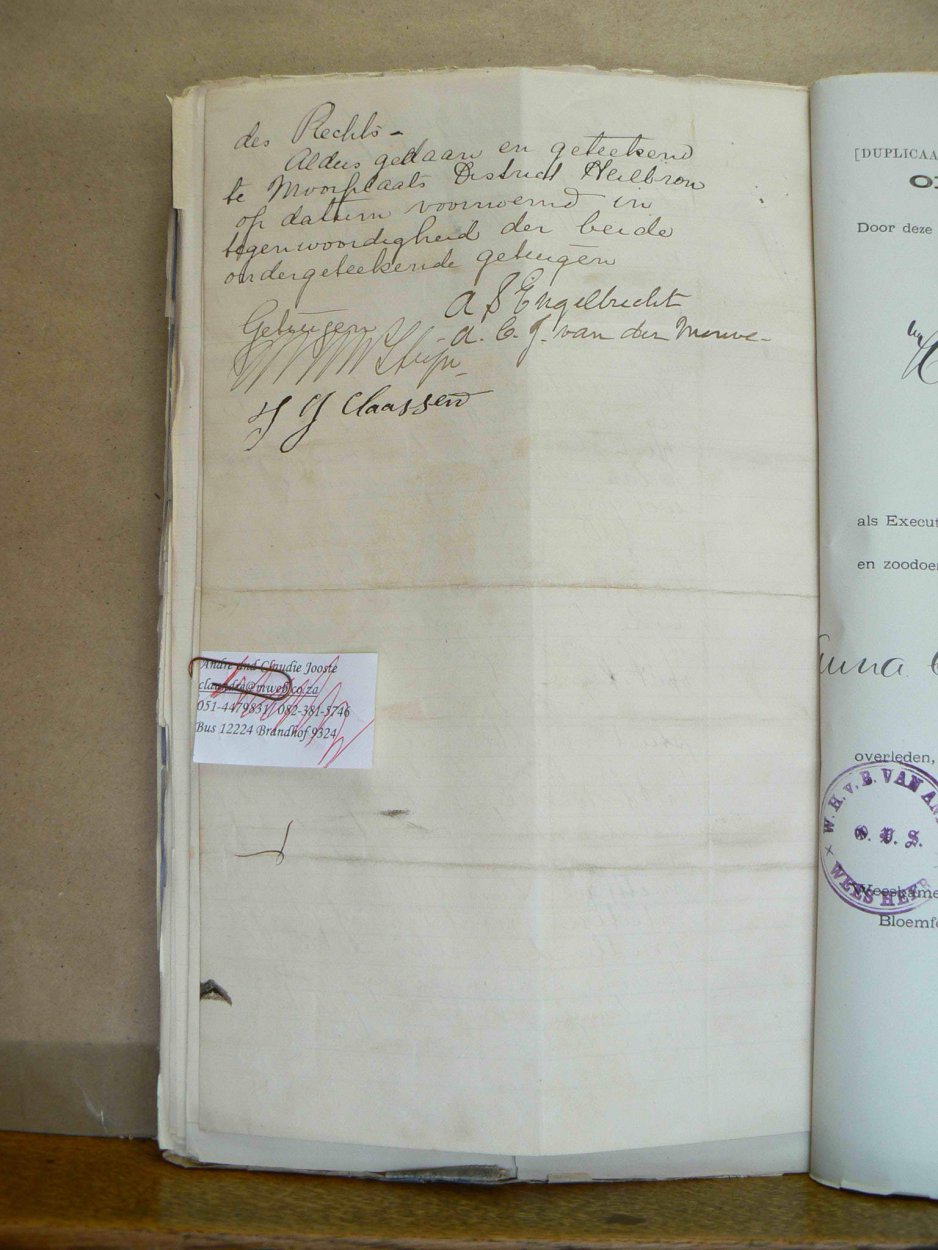 des Rechts -
Aldus gedaan en geteekend
te Mooiplaats District Heilbron
op datum voornoemd in
tegenwoordigheid der beide
ondergeteekende getuigen
A S Engelbrecht
Getuigen A. C. J. van der Merwe -
J J Claassen
Andre and Claudie Jooste
claandre@mweb.co.za
051-4479831 / 082-381-5746
Bus 12224 Brandhof 9324
[DUPLICAA
Door deze
als Execut
en zoodoen
overleden,
W. H. v. B. VAN AN
O. V. S.
WEESHEER
Weeskame
Bloemfo